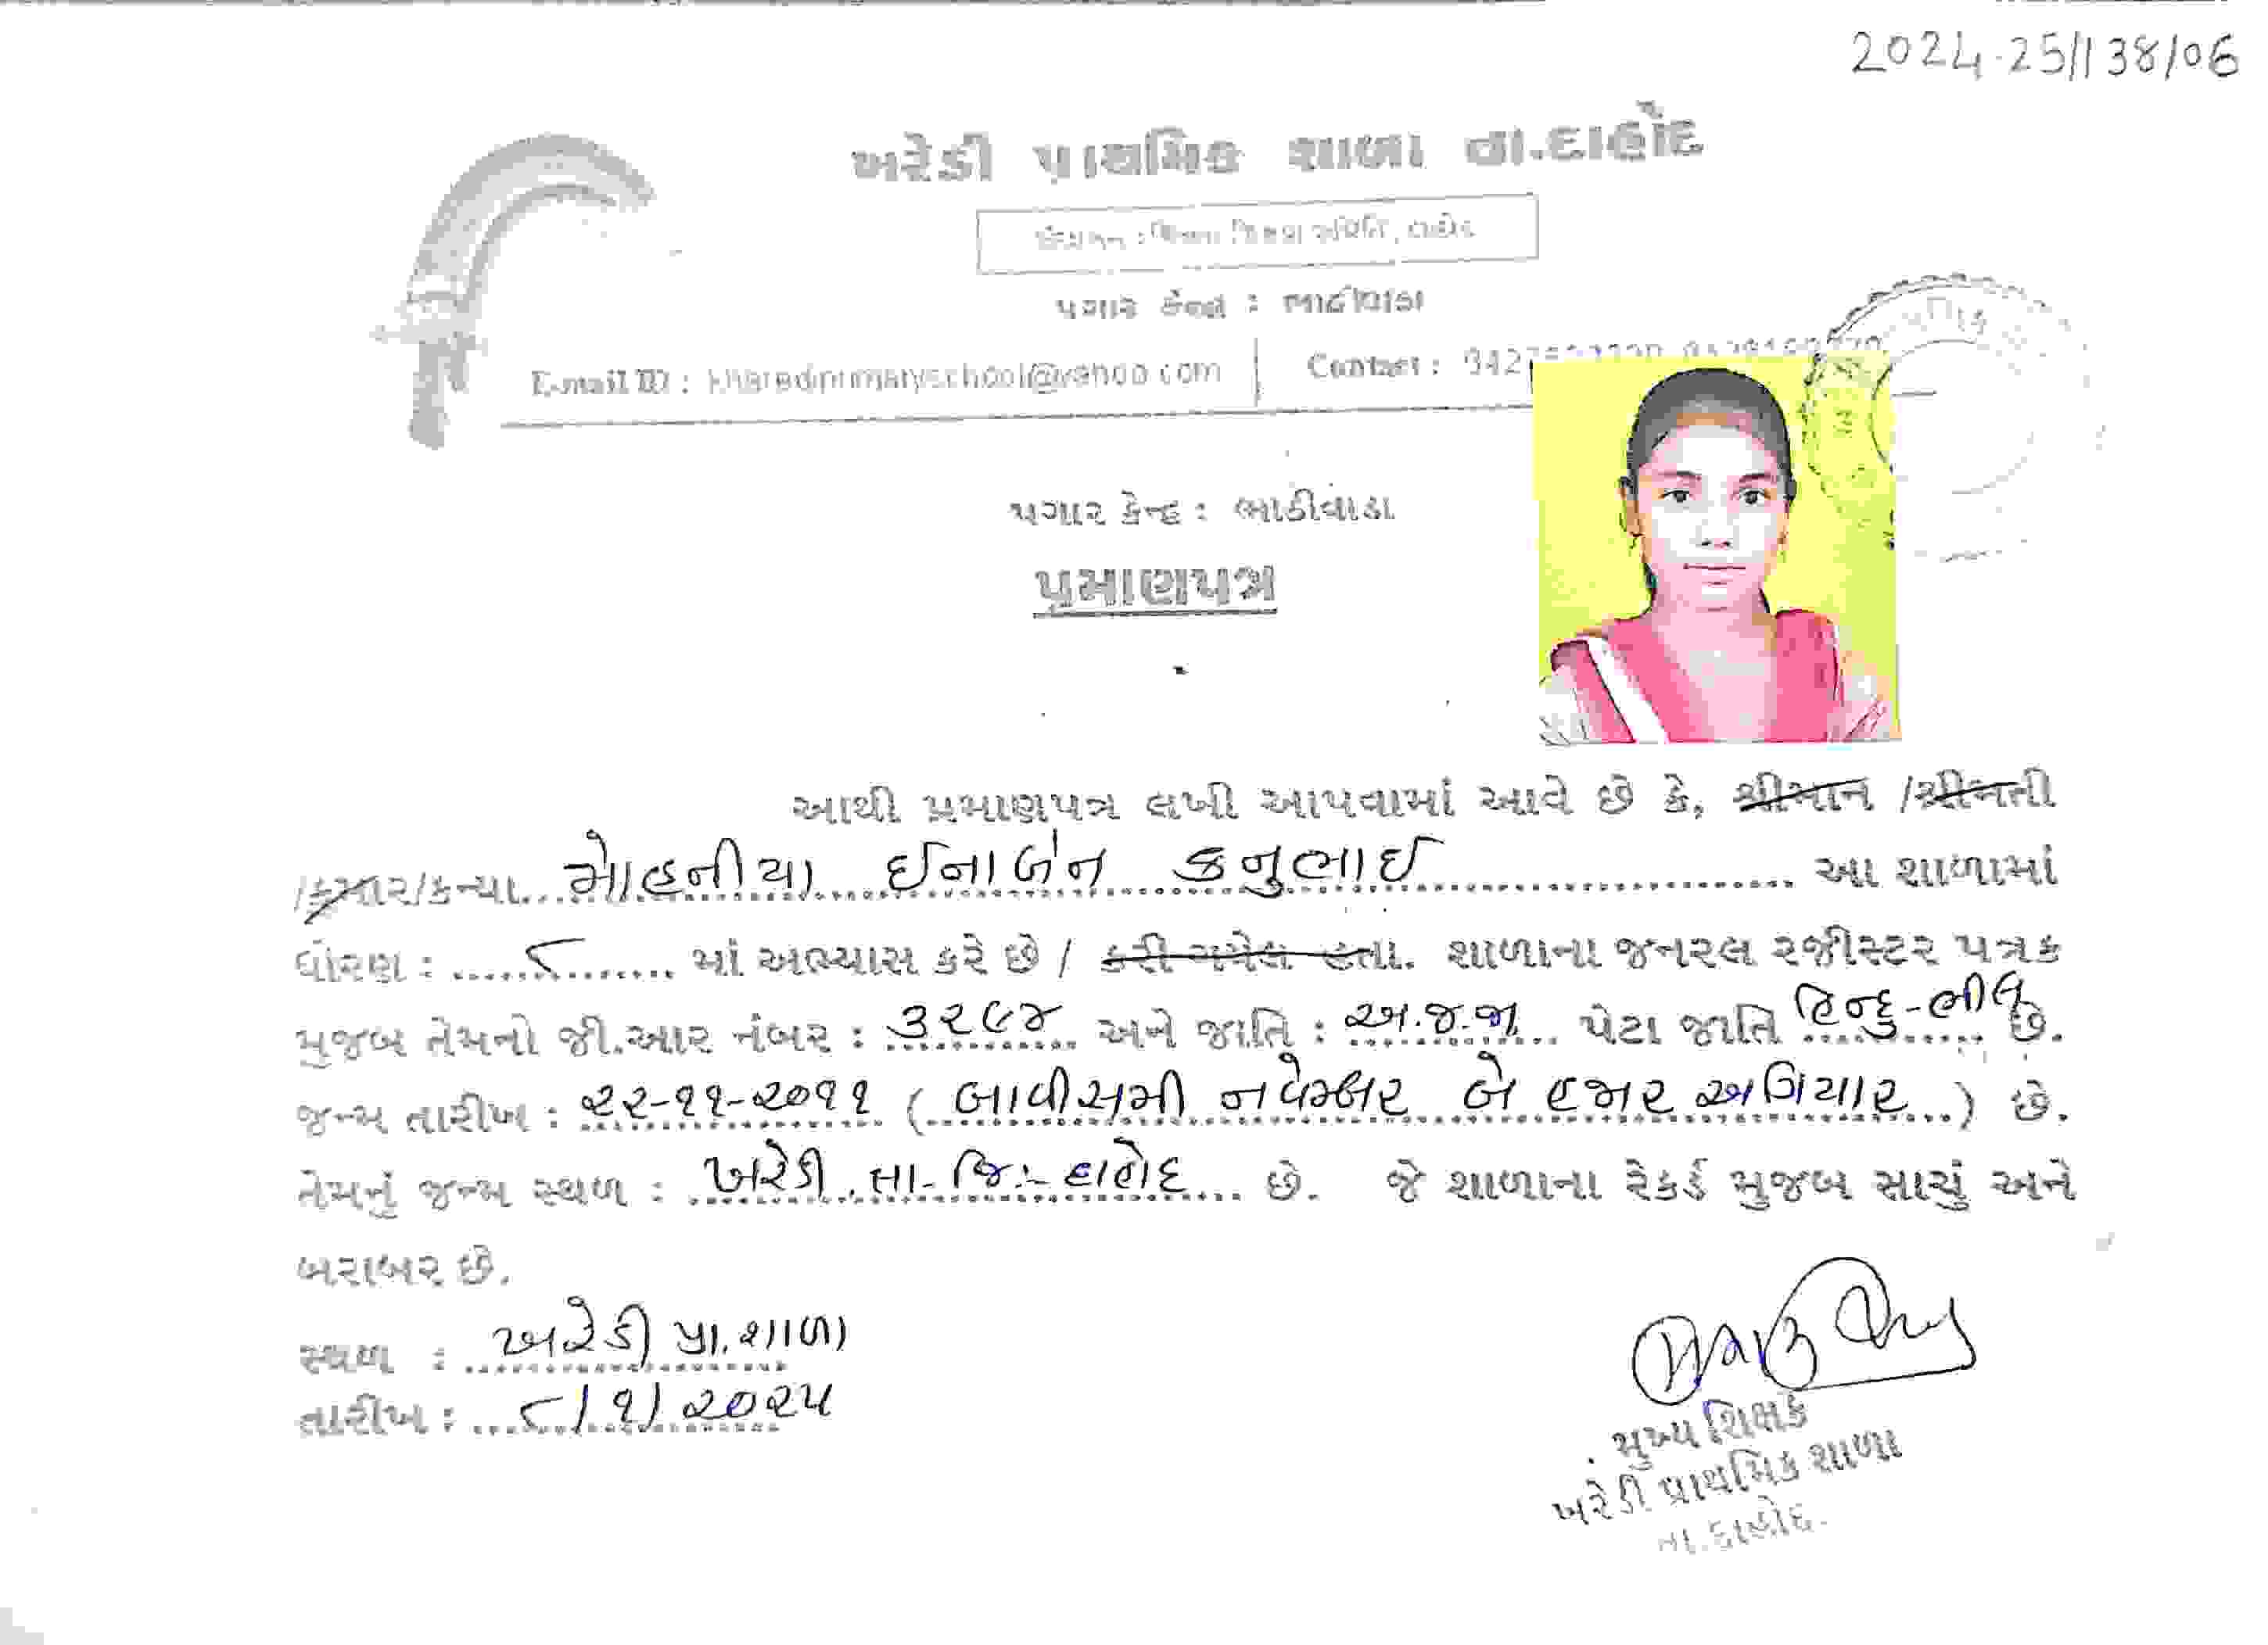 2024-25/138/06
ખરેડી પ્રાથમિક શાળા તા.દાહોદ
પગાર કેન્દ્ર : ભાઠીવાડા
E-mail ID : kharediprimaryschool@yahoo.com | Contact :
પગાર કેન્દ્ર : ભાઠીવાડા
પ્રમાણપત્ર
આથી પ્રમાણપત્ર લખી આપવામાં આવે છે કે, શ્રીમાન /શ્રીમતી
/કુમાર/કન્યા મોહનીયા ઈનાબેન કનુભાઈ આ શાળામાં
ધોરણ : ૮ માં અભ્યાસ કરે છે / કરી ગયેલ હતા. શાળાના જનરલ રજીસ્ટર પત્રક
મુજબ તેમનો જી.આર નંબર : ૩૨૯૪ અને જાતિ : અ.જ.જા. પેટા જાતિ હિન્દુ-ભીલ છે.
જન્મ તારીખ : ૨૨-૧૧-૨૦૧૧ (બાવીસમી નવેમ્બર બે હજાર અગિયાર) છે.
તેમનું જન્મ સ્થળ : ખરેડી તા- જિ:- દાહોદ છે. જે શાળાના રેકર્ડ મુજબ સાચું અને
બરાબર છે.
સ્થળ : ખરેડી પ્રા.શાળા
તારીખ : ૮/૧/૨૦૨૫
મુખ્ય શિક્ષક
ખરેડી પ્રાથમિક શાળા
તા.દાહોદ.